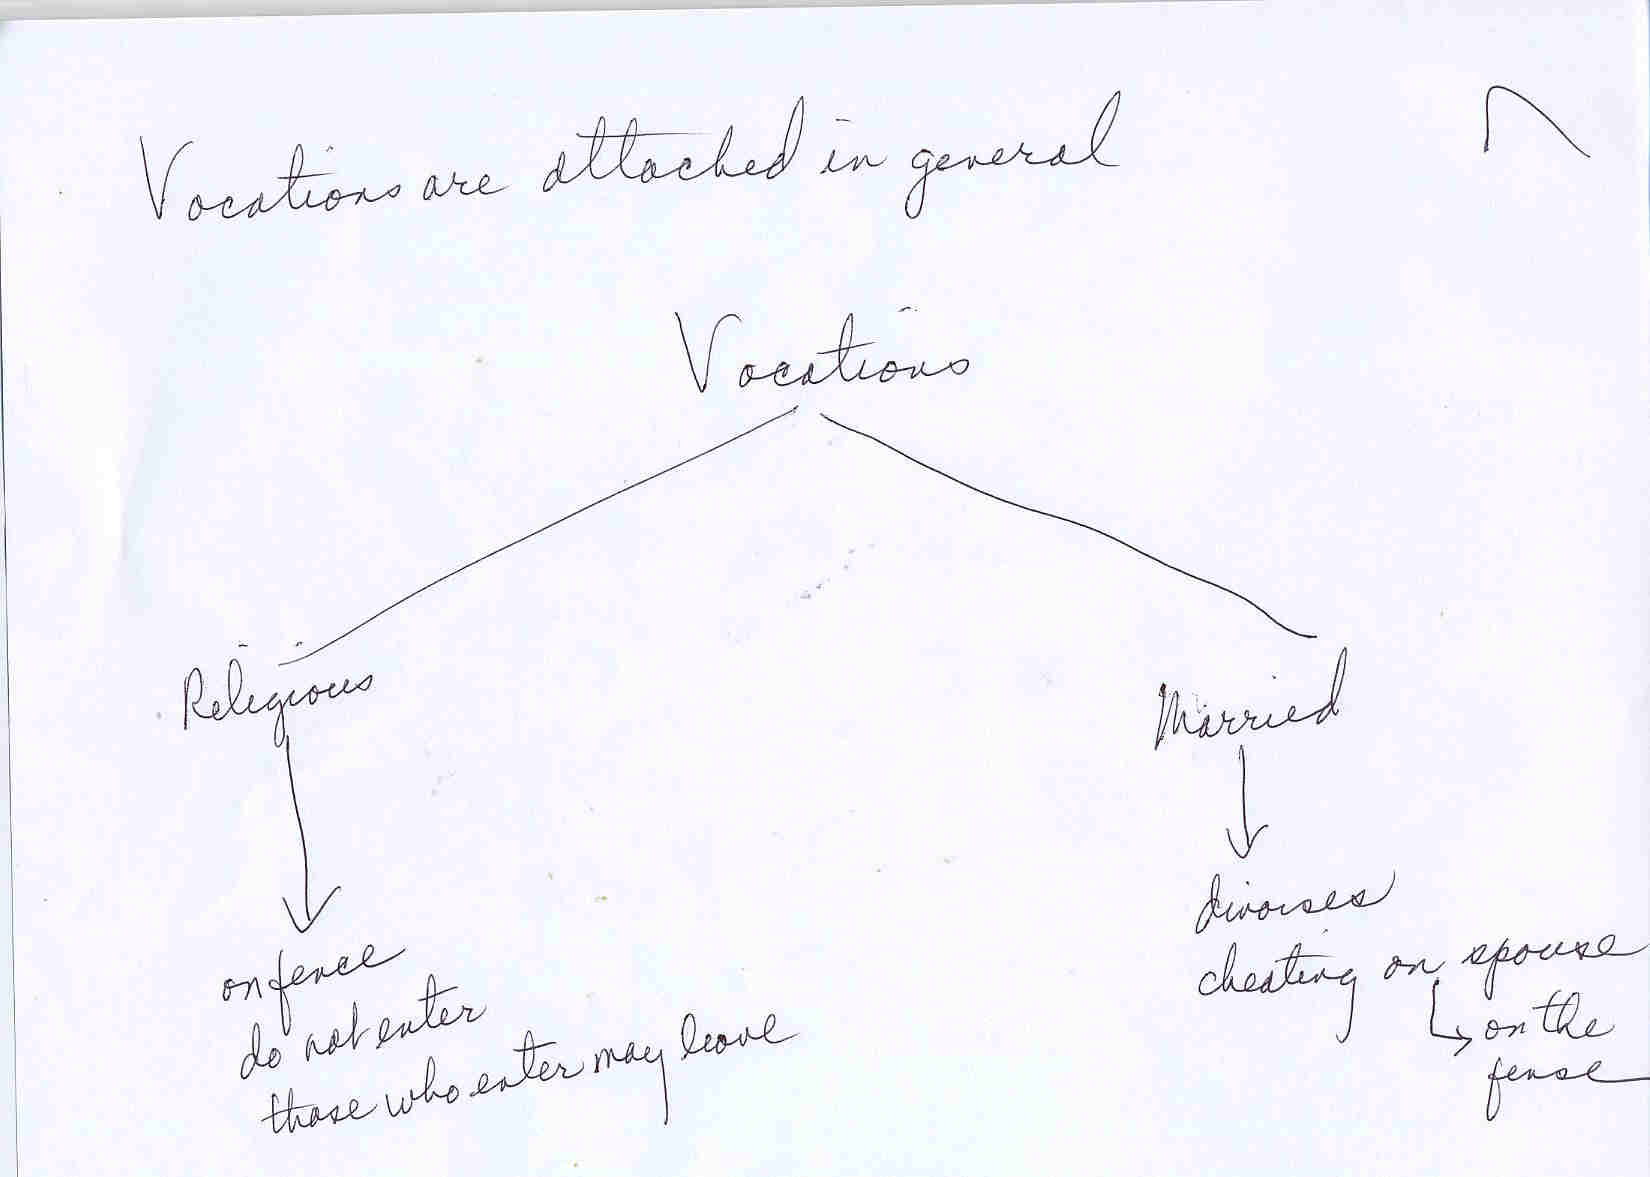 Vocations are attached in general
Vocations
Religious
on fence
do not enter
those who enter may leave
Married
divorses
cheating on spouse
on the
fense